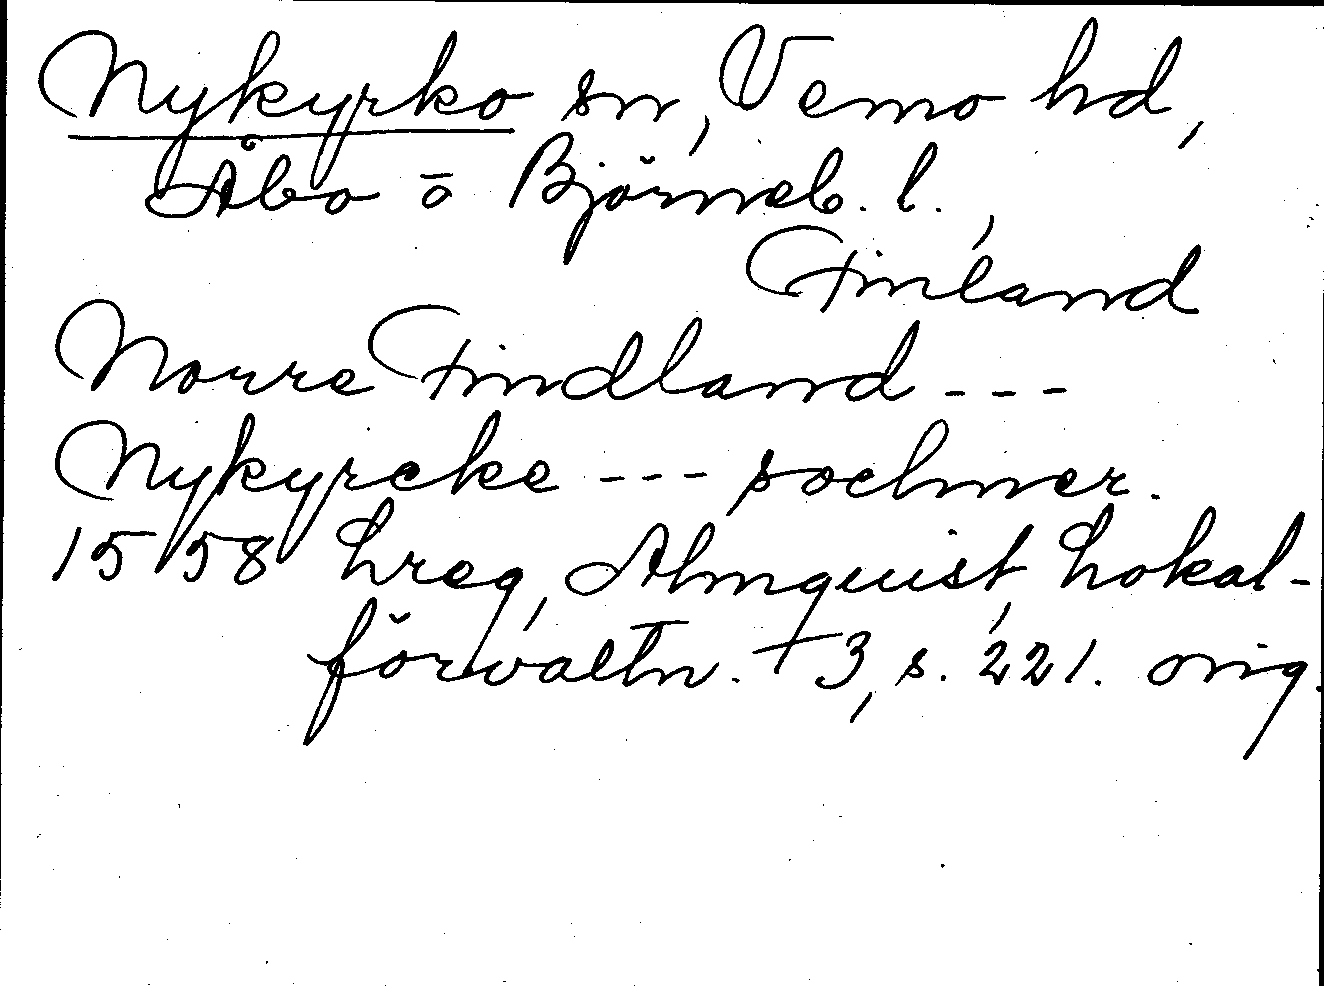 Nykyrko sn, Vemo hd,
Åbo o Björneb. l.,
Finland
Norre Findland ---
Nykyrcke --- sochner.
1558 Lreg, Almquist, Lokal-
förvaltn. + 3, s. 221. orig.